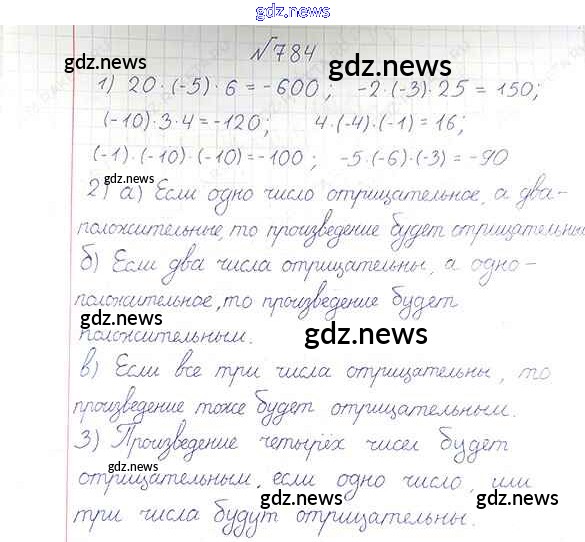 gdz.news
№784
gdz.news
gdz.news
1) 20·(-5)·6 = -600; -2·(-3)·25 = 150;
(-10)·3·4 = -120; 4·(-4)·(-1) = 16;
(-1)·(-10)·(-10) = -100; -5·(-6)·(-3) = -90
gdz.news
2) а) Если одно число отрицательное, а два-
положительные, то произведение будет отрицательны
б) Если два числа отрицательны, а одно-
положительное, то произведение будет
gdz.news
положительным.
gdz.news
в) Если все три числа отрицательны, то
произведение тоже будет отрицательным.
3) Произведение четырёх чисел будет
gdz.news
отрицательным, если одно число, или
gdz.news
gdz.news
три числа будут отрицательны.